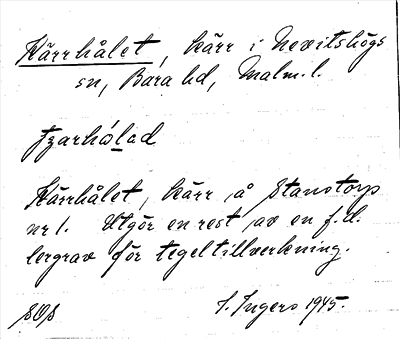 Kärrhålet, kärr i Nevitshögs
sn, Bara hd, Malm. l.
Kärrhålet, kärr å Stanstorp
nr 1. Utgör en rest av en f.d.
lergrav för tegeltillverkning.
I. Ingers 1945.